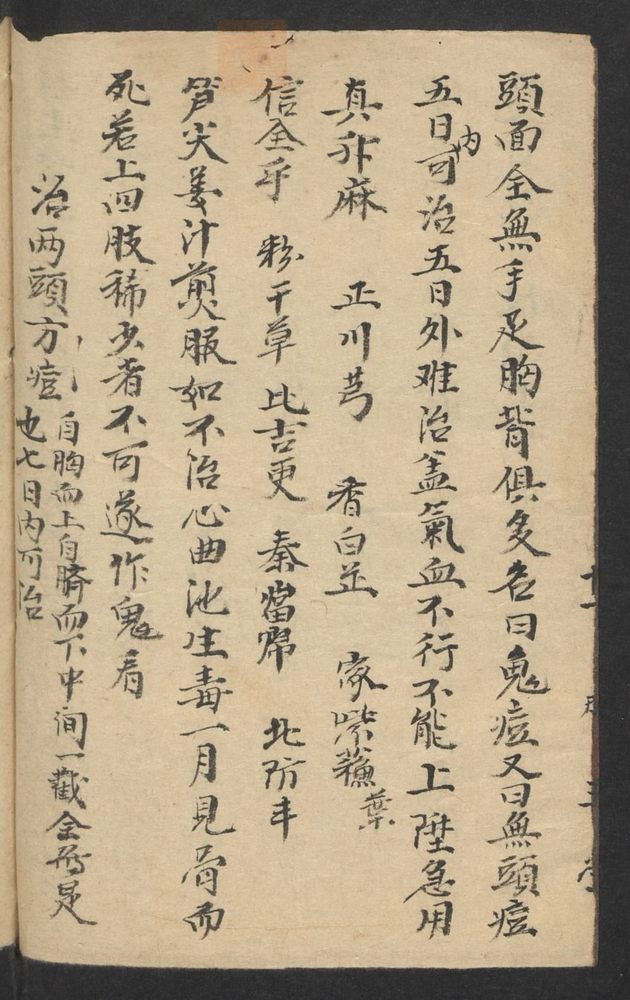 頭面全無手足胸背俱多名曰鬼痘又曰無頭痘
五日内可治五日外难治盖氣血不行不能上陞急用
真升麻 正川芎 香白芷 家紫蘓葉
信全乎 粉干草 比吉更 秦當帰 北防丰
笋尖姜汁煎服如不治心曲池生毒一月見骨而
死若上四肢稀少者不可遂作鬼看
治两頭方痘 自胸而上自臍而下中间一截全無是
也七日内可治